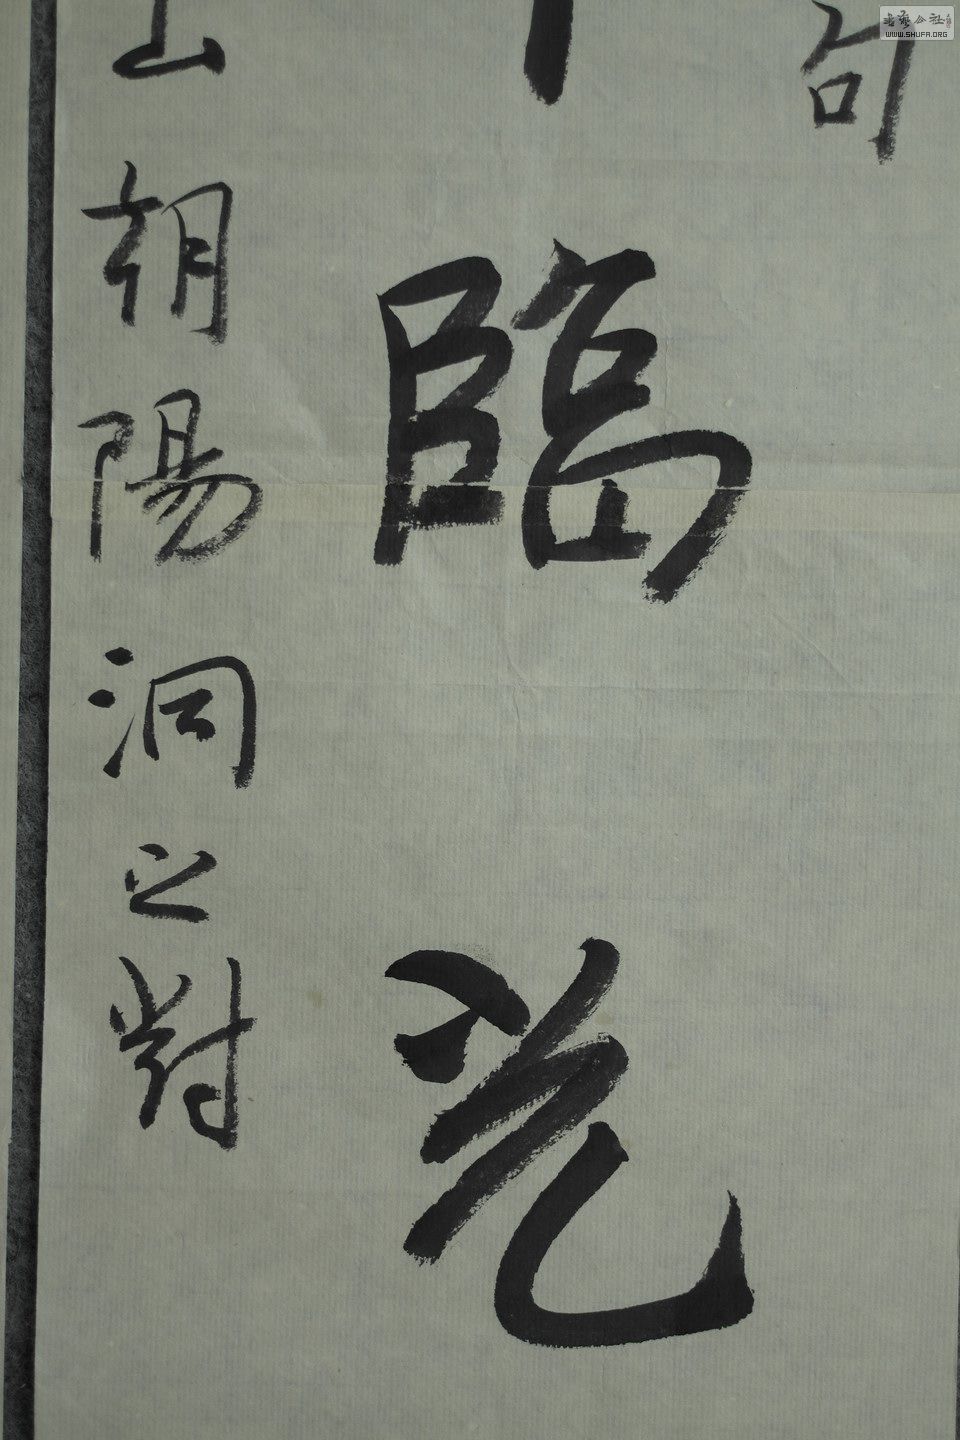 句
臨光
山朝陽洞之對
WWW.SHUFA.ORG